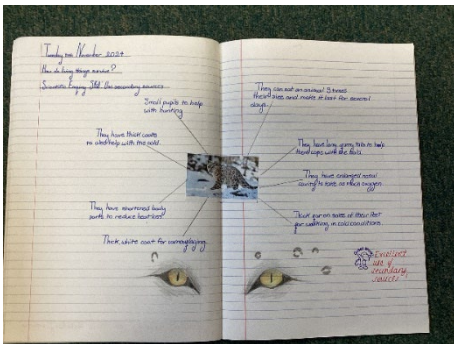 Tuesday November 2024
How do living things survive?
Scientific Enquiry Skill: Use secondary sources
Small pupils to help
with hunting.
They have thick coats
to help with the cold.
They have shortened body
parts to reduce heat loss.
Thick white coat for camouflaging.
They can eat an animal 3 times
their size and make it last for several
days.
They have long furry tails to help
with the cold.
They have enlarged nasal
cavity to take as much oxygen
Thick fur on soles of their feet
for walking in cold conditions.
Excellent
use of
secondary
sources